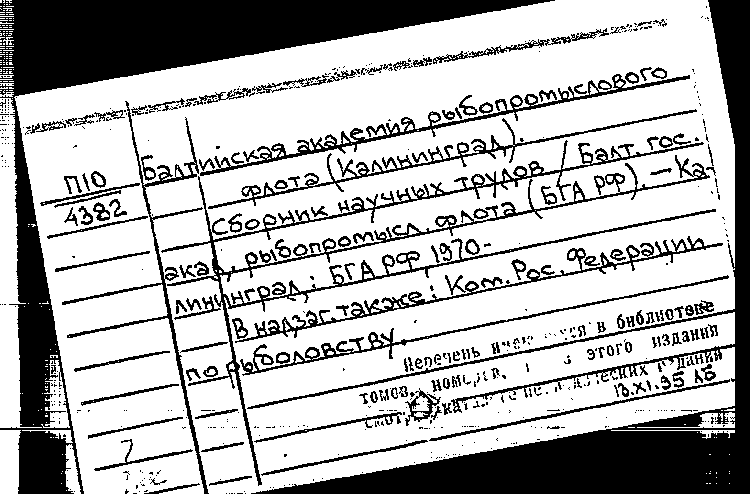 П10
4382
Балтийская академия рыбопромыслового
флота (Калининград).
Сборник научных трудов / Балт. гос.
акад. рыбопромысл. флота (БГА РФ). — Ка-
лининград,: БГА РФ, 1970-
В надзаг. также: Ком. Рос. Федерации
по рыболовству.
Перечень имеющихся в библиотеке
томов, номеров, этого издания
смотр. каталоге периодических изданий
13.XI.95